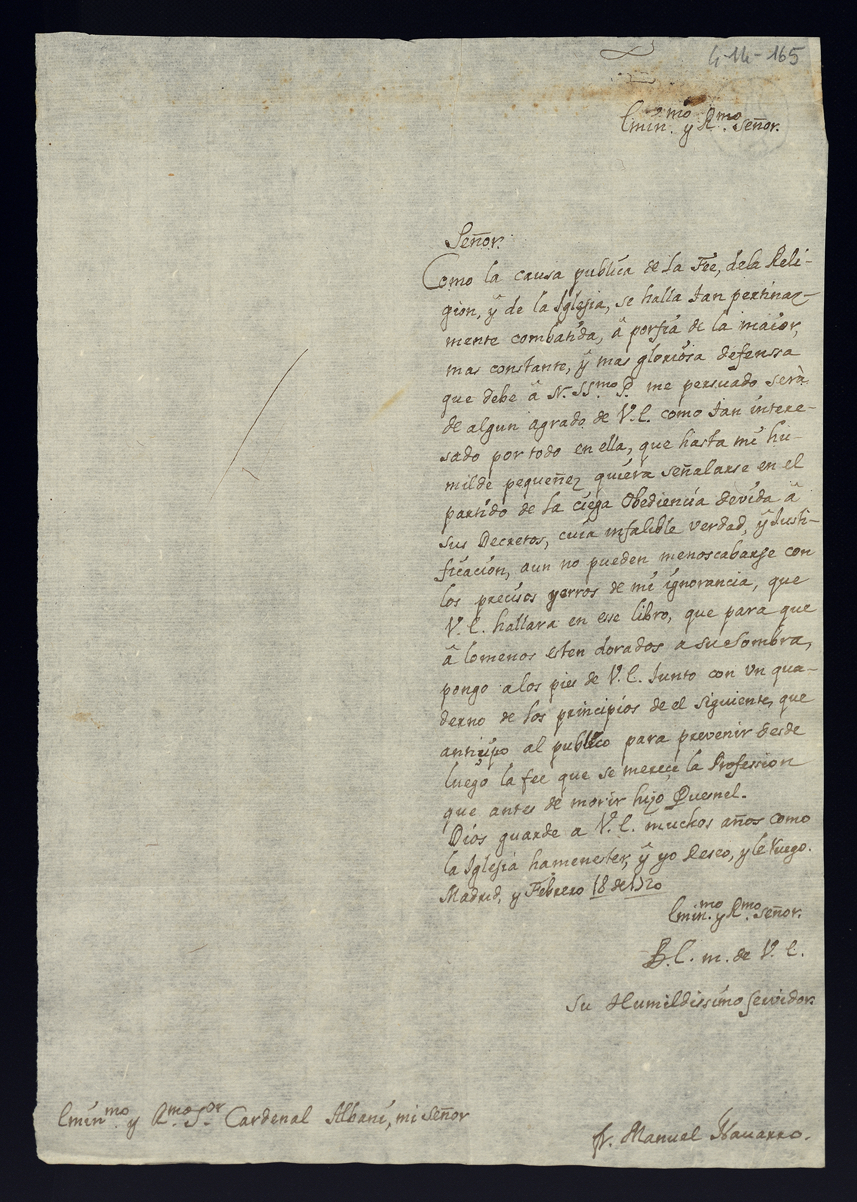 4-14-165
Emin.mo y R.mo Señor.
Señor.
Como la causa publica de la Fee, dela Reli-
gion, ÿ de la Iglesia, se halla tan pertinaz-
mente combatida, â porfia de la maior,
mas constante, ÿ mas gloriosa defenssa
que debe â N. SS.mo P. me persuado serà
de algun agrado de V. E. como tan intere-
sado por todo en ella, que hasta mi hu-
milde pequeñez quiera señalarse en el
partido de la ciega Obediencia devida â
sus Decretos, cuia infalible verdad, ÿ Justi-
ficacion, aun no pueden menoscabarse con
los precisos yerros de mi ignorancia, que
V. E. hallara en ese libro, que para que
â lomenos esten dorados a su sombra,
pongo a los pies de V. E. Junto con un qua-
derno de los principios de el siguiente, que
anticipo al publico para prevenir desde
luego la fee que se merece la Profession
que antes de morir hizo Quesnel.
Dios guarde a V. E. muchos años como
la Iglesia hamenester, ÿ yo deseo, y le ruego.
Madrid, y Febrero 18 de 1720
Emin.mo y R.mo Señor.
B. L. m. de V. E.
su Humildissimo servidor.
Emin.mo y R.mo S.or Cardenal Albani, mi Señor
Fr. Manuel Navarro.